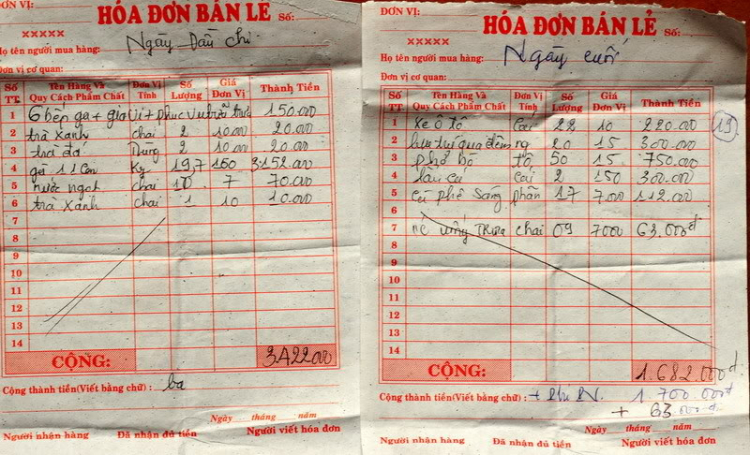 ĐƠN VỊ:
HÓA ĐƠN BÁN LẺ Số:
xxxxx
Họ tên người mua hàng: Ngày Dầu chi
Đơn vị cơ quan:
Số TT Tên Hàng Và Quy Cách Phẩm Chất Đơn Vị Tính Số Lượng Giá Đơn Vị Thành Tiền
1 6 bếp ga + gia vị + phục vụ 150.000
2 trà xanh chai 2 10.000 20.000
3 trà đá Thùng 2 10.000 20.000
4 gà 11 con Kg 19,7 160 3152.000
5 nước ngọt chai 10 7 70.000
6 trà xanh chai 1 10 10.000
7
8
9
10
11
12
13
14
CỘNG: 3.422.000
Cộng thành tiền(Viết bằng chữ) : ba
Ngày tháng năm
Người nhận hàng Đã nhận đủ tiền Người viết hóa đơn
ĐƠN VỊ:
HÓA ĐƠN BÁN LẺ Số:
xxxxx
Họ tên người mua hàng: Ngày cuối
Đơn vị cơ quan:
Số TT Tên Hàng Và Quy Cách Phẩm Chất Đơn Vị Tính Số Lượng Giá Đơn Vị Thành Tiền
1 xe ô tô Cái 22 10 220.000 19
2 lưu trú qua đêm ng 20 15 300.000
3 phở bò tô 50 15 750.000
4 lẩu cá Cái 2 150 300.000
5 cà phê Sáng phần 17 7000 112.000
6
7 chai 09 7000 63.000đ
8
9
10
11
12
13
14
CỘNG: 1.682.000đ
Cộng thành tiền(Viết bằng chữ) : + 1.700.000đ
+ 63.000đ
Ngày tháng năm
Người nhận hàng Đã nhận đủ tiền Người viết hóa đơn